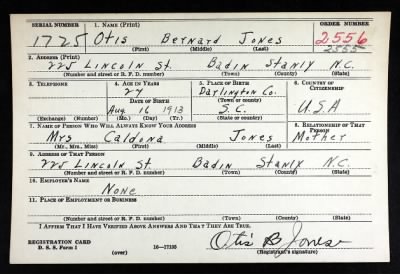 SERIAL NUMBER 1. NAME (Print) ORDER NUMBER
1725 Otis Bernard Jones 2556
2555
(First) (Middle) (Last)
2. ADDRESS (Print)
225 Lincoln St. Badin Stanly N.C.
(Number and street or R. F. D. number) (Town) (County) (State)
3. TELEPHONE 4. AGE IN YEARS 5. PLACE OF BIRTH 6. COUNTRY OF CITIZENSHIP
27 Darlington Co.
DATE OF BIRTH (Town or county)
Aug 16 1913 S.C. U.S.A
(Exchange) (Number) (Mo.) (Day) (Yr.) (State or country)
7. NAME OF PERSON WHO WILL ALWAYS KNOW YOUR ADDRESS 8. RELATIONSHIP OF THAT PERSON
Mrs Caldona Jones Mother
(Mr., Mrs., Miss) (First) (Middle) (Last)
9. ADDRESS OF THAT PERSON
225 Lincoln St. Badin Stanly N.C.
(Number and street or R. F. D. number) (Town) (County) (State)
10. EMPLOYER'S NAME
None
11. PLACE OF EMPLOYMENT OR BUSINESS
(Number and street or R. F. D. number) (Town) (County) (State)
I AFFIRM THAT I HAVE VERIFIED ABOVE ANSWERS AND THAT THEY ARE TRUE.
REGISTRATION CARD
D. S. S. Form 1 (over) 16—17105 Otis B Jones
(Registrant's signature)